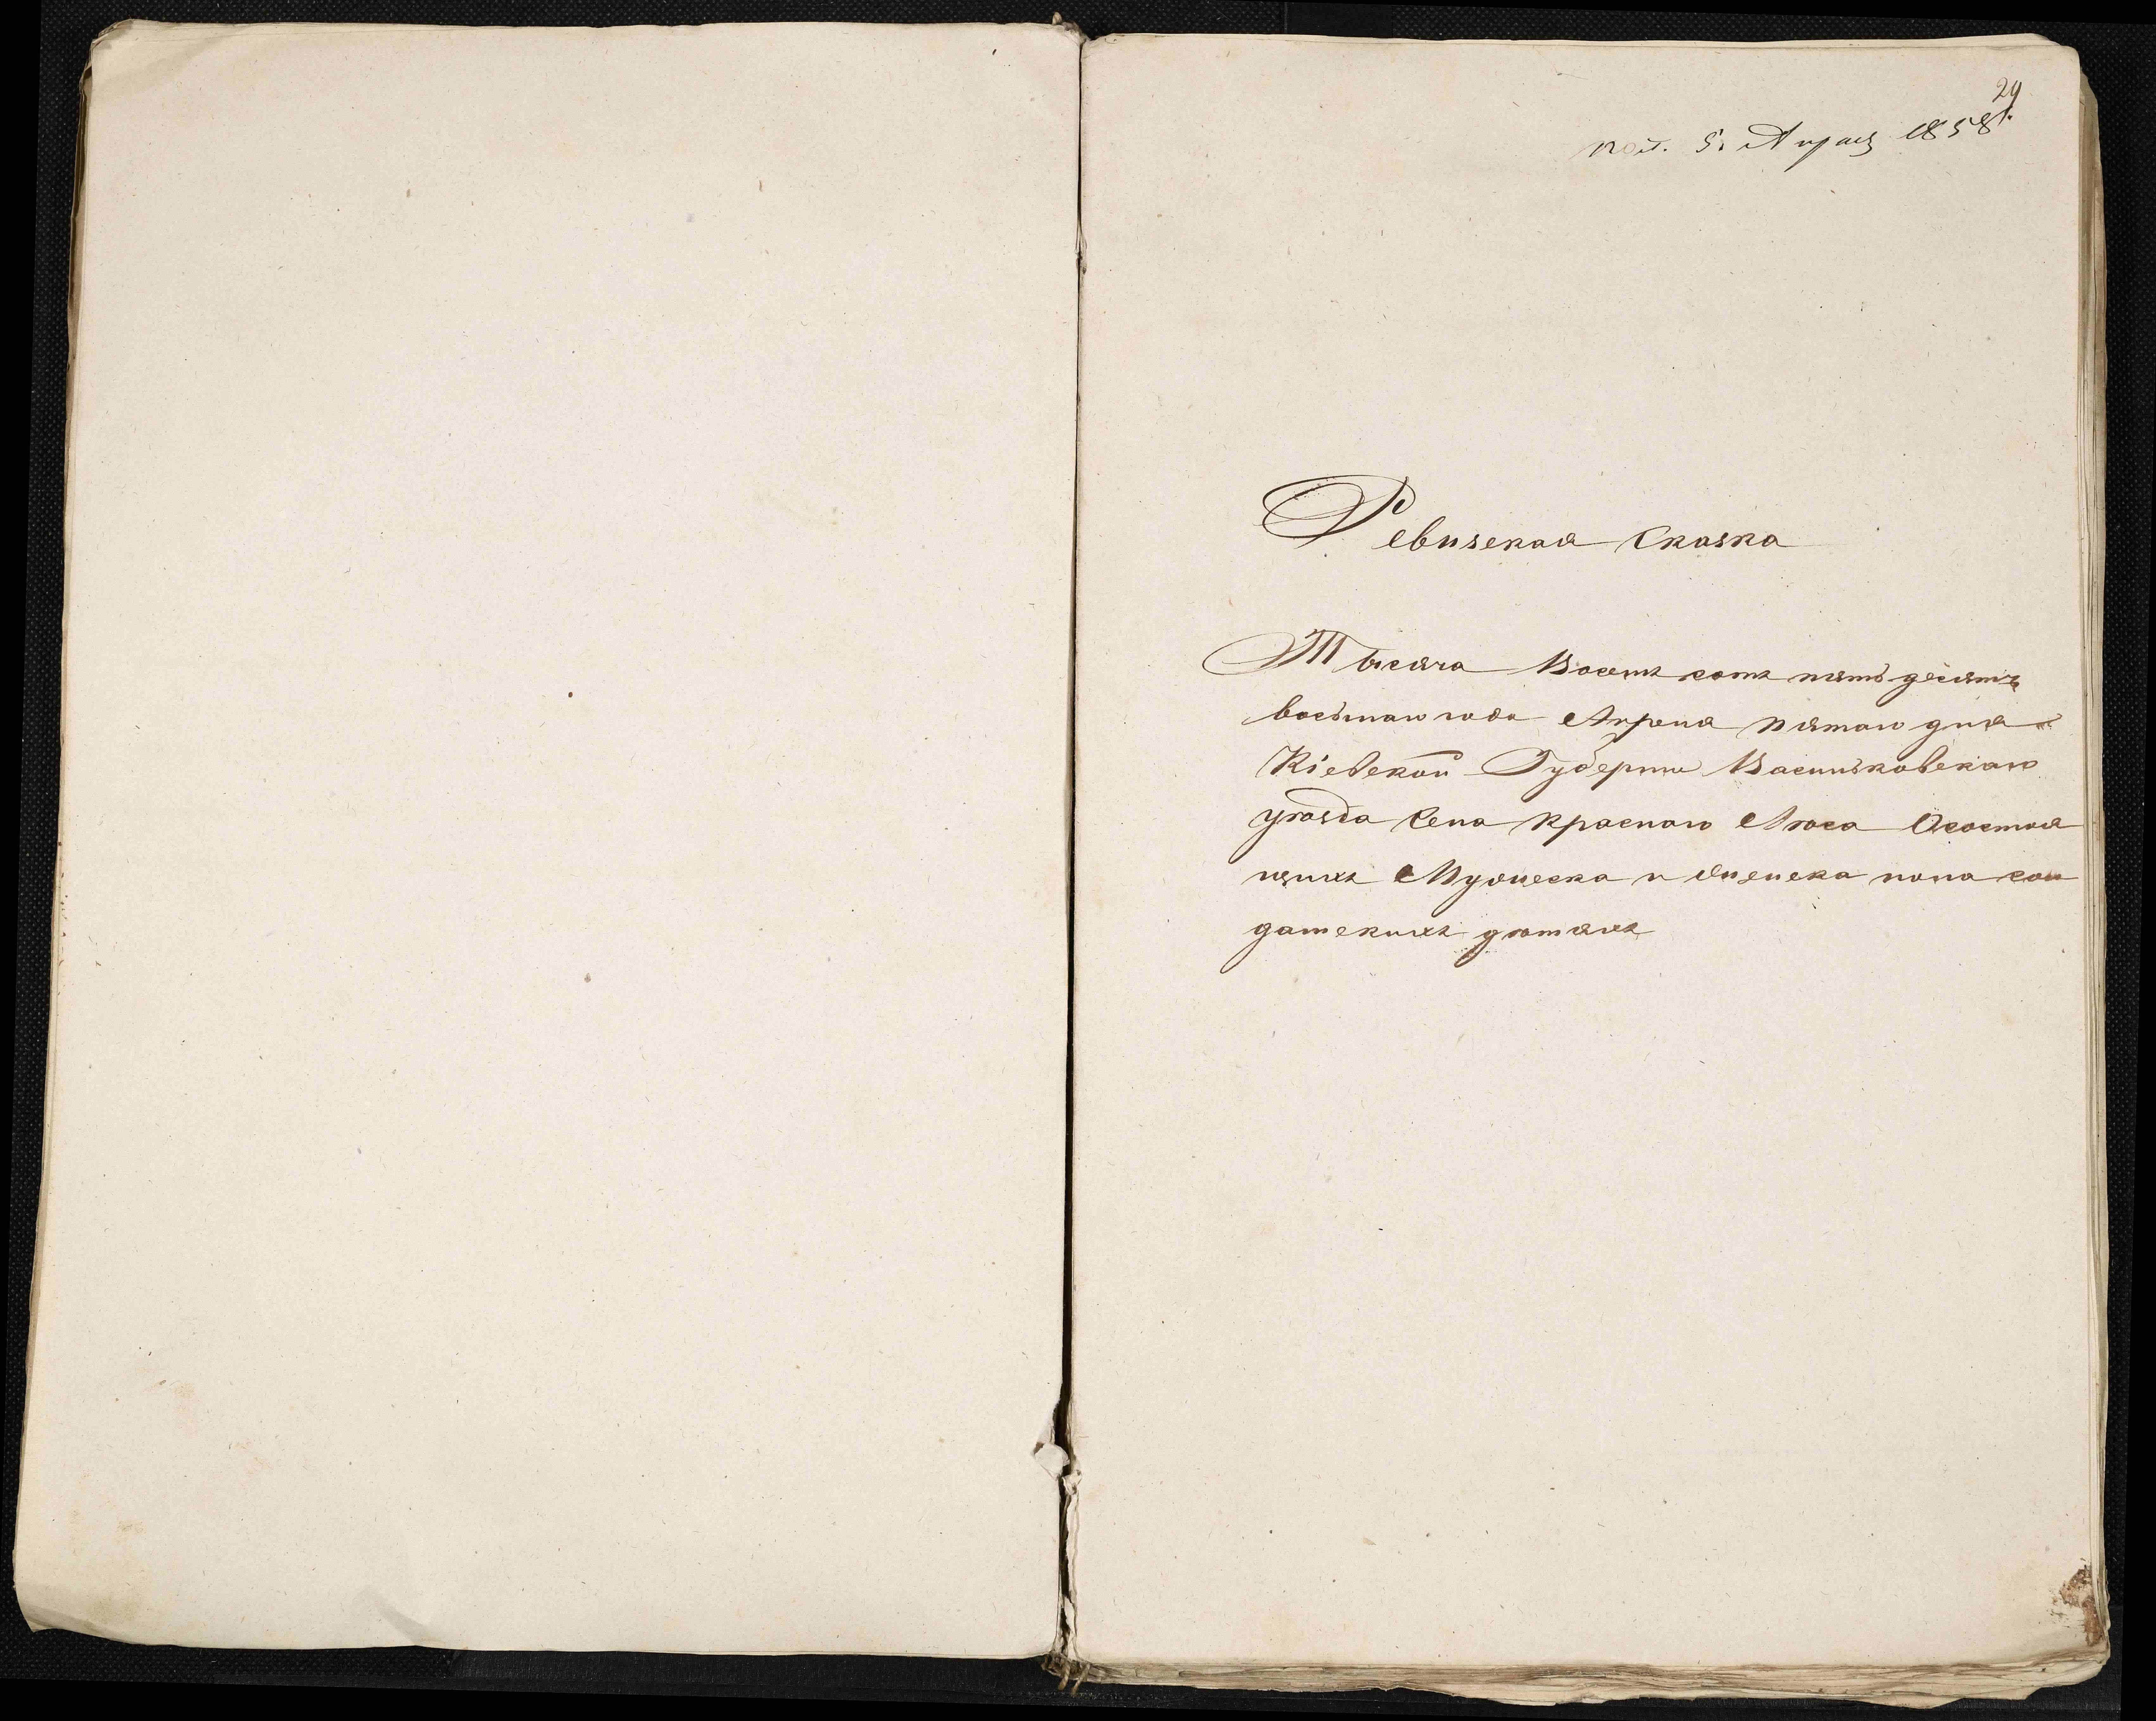 29
пол. 5. Апрѣл 1858 г.
Ревизская Сказка
Тысяча Восемь сотъ пять десятъ
восьмаго года Апрѣля пятаго дня
Кіевской Губерніи Васильковскаго
уѣзда Села Краснаго Лѣса О состоя
щихъ Мужеска и Женска пола сол
датскихъ дѣтяхъ